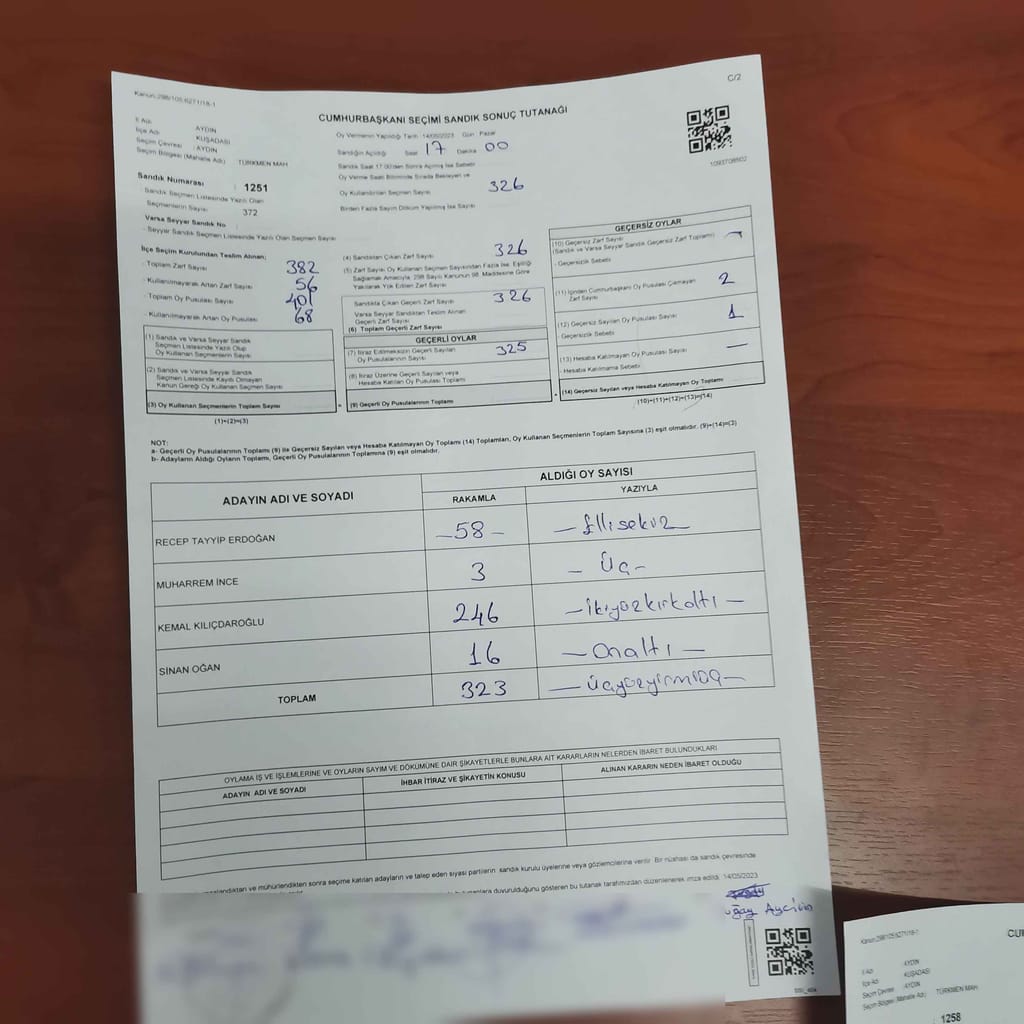 Kanun:298/105,6271/18-1
C/2
CUMHURBAŞKANI SEÇİMİ SANDIK SONUÇ TUTANAĞI
İl Adı : AYDIN
İlçe Adı : KUŞADASI
Seçim Çevresi : AYDIN
Seçim Bölgesi (Mahalle Adı) : TÜRKMEN MAH
Oy Vermenin Yapıldığı Tarih : 14/05/2023 Gün : Pazar
Sandığın Açıldığı Saat 17 Dakika 00
Sandık Saat 17:00'den Sonra Açılmış İse Sebebi
Oy Verme Saati Bitiminde Sırada Bekleyen ve
Oy Kullandırılan Seçmen Sayısı 326
Birden Fazla Sayım Döküm Yapılmış İse Sayısı
1093708802
Sandık Numarası : 1251
- Sandık Seçmen Listesinde Yazılı Olan
Seçmenlerin Sayısı : 372
Varsa Seyyar Sandık No
- Seyyar Sandık Seçmen Listesinde Yazılı Olan Seçmen Sayısı
İlçe Seçim Kurulundan Teslim Alınan;
- Toplam Zarf Sayısı 382
- Kullanılmayarak Artan Zarf Sayısı 56
- Toplam Oy Pusulası Sayısı 401
- Kullanılmayarak Artan Oy Pusulası 68
(1) Sandık ve Varsa Seyyar Sandık
Seçmen Listesinde Yazılı Olup
Oy Kullanan Seçmenlerin Sayısı
(2) Sandık ve Varsa Seyyar Sandık
Seçmen Listesinde Kayıtlı Olmayan
Kanun Gereği Oy Kullanan Seçmen Sayısı
(3) Oy Kullanan Seçmenlerin Toplam Sayısı
(1)+(2)=(3)
(4) Sandıktan Çıkan Zarf Sayısı 326
(5) Zarf Sayısı Oy Kullanan Seçmen Sayısından Fazla İse, Eşitliği
Sağlamak Amacıyla, 298 Sayılı Kanunun 98. Maddesine Göre
Yakılarak Yok Edilen Zarf Sayısı
Sandıkta Çıkan Geçerli Zarf Sayısı 326
Varsa Seyyar Sandıktan Teslim Alınan
Geçerli Zarf Sayısı
(6) Toplam Geçerli Zarf Sayısı
GEÇERLİ OYLAR
(7) İtiraz Edilmeksizin Geçerli Sayılan
Oy Pusulalarının Sayısı 325
(8) İtiraz Üzerine Geçerli Sayılan veya
Hesaba Katılan Oy Pusulası Toplamı
= (9) Geçerli Oy Pusulalarının Toplamı
GEÇERSİZ OYLAR
(10) Geçersiz Zarf Sayısı
(Sandık ve Varsa Seyyar Sandık Geçersiz Zarf Toplamı) —
- Geçersizlik Sebebi
(11) İçinden Cumhurbaşkanı Oy Pusulası Çıkmayan
Zarf Sayısı 2
(12) Geçersiz Sayılan Oy Pusulası Sayısı 1
- Geçersizlik Sebebi
(13) Hesaba Katılmayan Oy Pusulası Sayısı —
- Hesaba Katılmama Sebebi
+ (14) Geçersiz Sayılan veya Hesaba Katılmayan Oy Toplamı
(10)+(11)+(12)+(13)=(14)
NOT:
a- Geçerli Oy Pusulalarının Toplamı (9) ile Geçersiz Sayılan veya Hesaba Katılmayan Oy Toplamı (14) Toplamları, Oy Kullanan Seçmenlerin Toplam Sayısına (3) eşit olmalıdır. (9)+(14)=(3)
b- Adayların Aldığı Oyların Toplamı, Geçerli Oy Pusulalarının Toplamına (9) eşit olmalıdır.
ADAYIN ADI VE SOYADI
ALDIĞI OY SAYISI
RAKAMLA YAZIYLA
RECEP TAYYİP ERDOĞAN —58— — Ellisekiz —
MUHARREM İNCE 3 — Üç —
KEMAL KILIÇDAROĞLU 246 — ikiyüzkırkaltı —
SİNAN OĞAN 16 — Onaltı —
TOPLAM 323 — Üçyüzyirmiüç —
OYLAMA İŞ VE İŞLEMLERİNE VE OYLARIN SAYIM VE DÖKÜMÜNE DAİR ŞİKAYETLERLE BUNLARA AİT KARARLARIN NELERDEN İBARET BULUNDUKLARI
ADAYIN ADI VE SOYADI İHBAR İTİRAZ VE ŞİKAYETİN KONUSU ALINAN KARARIN NEDEN İBARET OLDUĞU
mühürlendikten sonra seçime katılan adayların ve talep eden siyasi partilerin sandık kurulu üyelerine veya gözlemcilerine verilir. Bir nüshası da sandık çevresinde
duyurulduğunu gösteren bu tutanak tarafımızdan düzenlenerek imza edildi. 14/05/2023
Kanun:298/105,6271/18-1
İl Adı : AYDIN
İlçe Adı : KUŞADASI
Seçim Çevresi : AYDIN
Seçim Bölgesi (Mahalle Adı) : TÜRKMEN MAH
1258